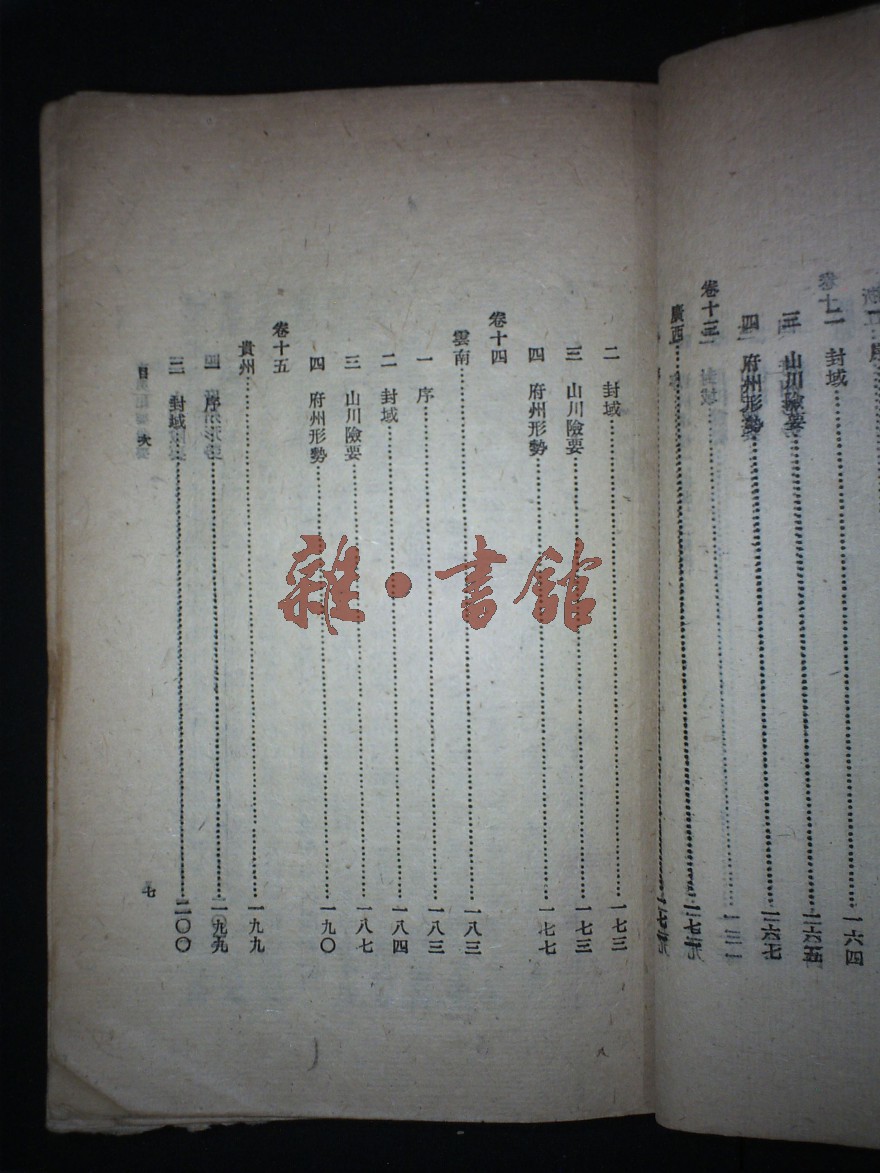 二 封域 一六四
三 山川險要 一六五
四 府州形勢 一六七
卷十三
廣西
二 封域 一七三
三 山川險要 一七三
四 府州形勢 一七七
卷十四
雲南 一八三
一 序 一八三
二 封域 一八四
三 山川險要 一八七
四 府州形勢 一九〇
卷十五
貴州 一九九
一 序 一九九
二 封域 二〇〇
目 次
七
雜·書館